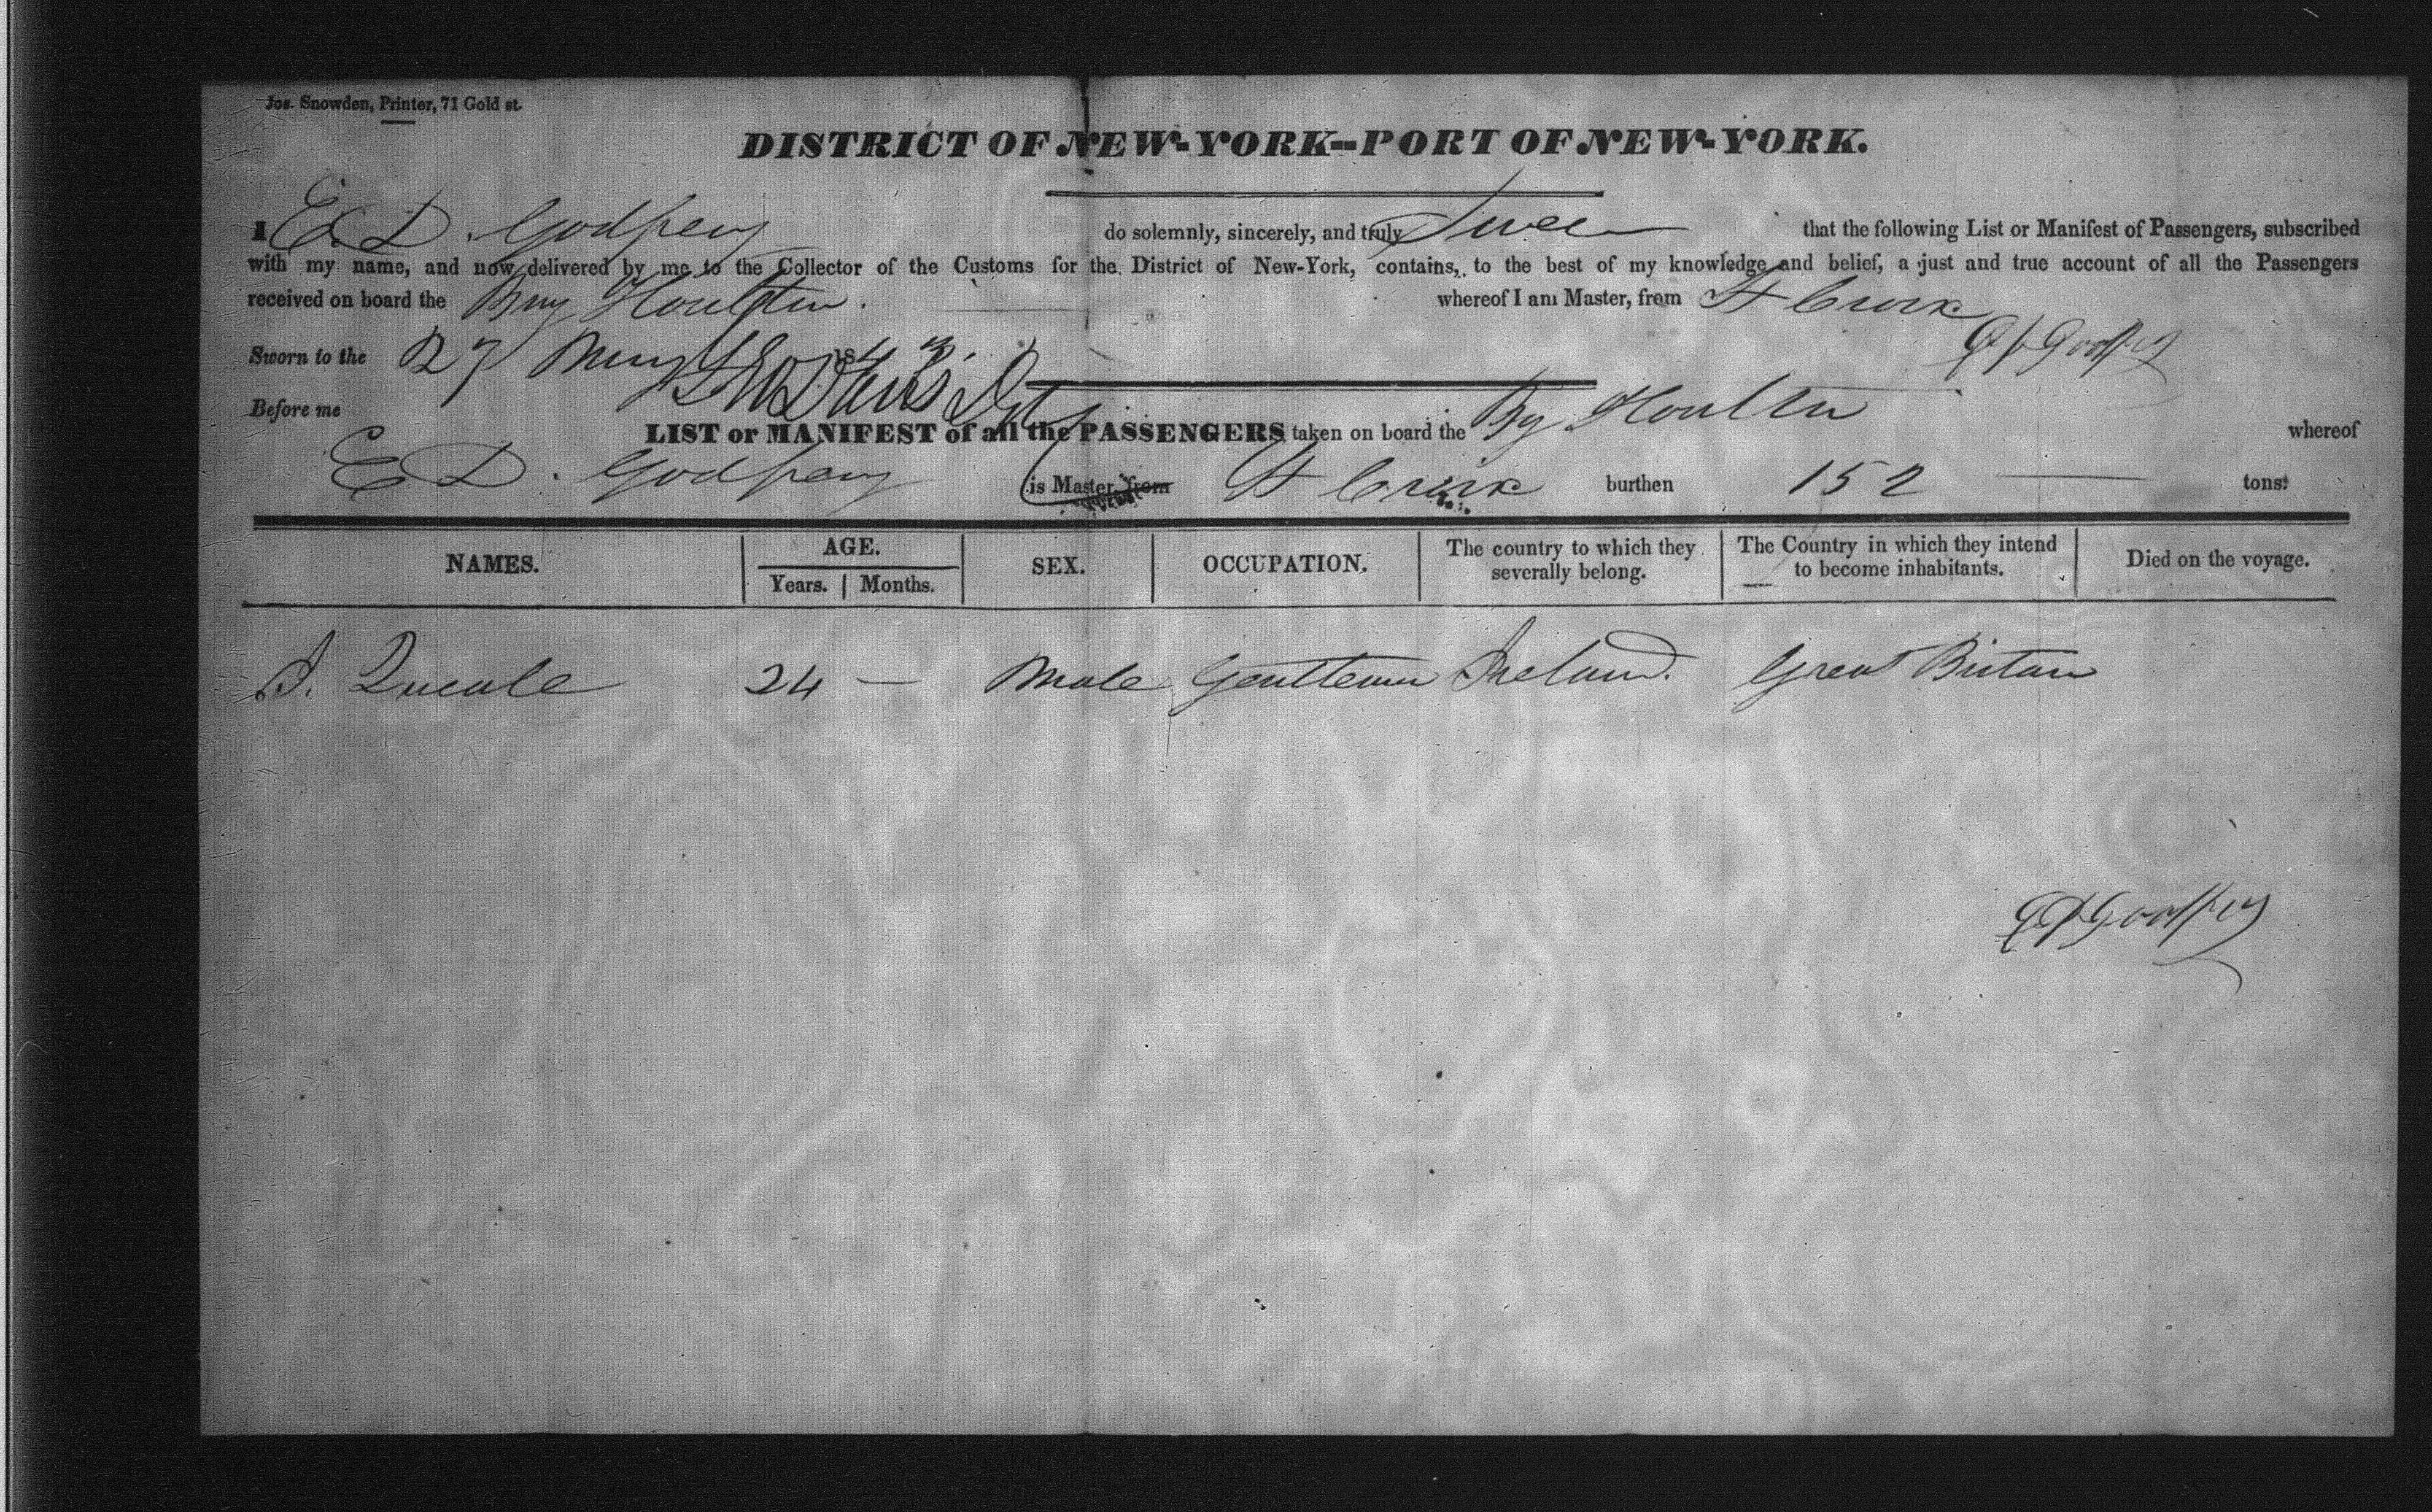 Jos. Snowden, Printer, 71 Gold st.
DISTRICT OF NEW-YORK--PORT OF NEW-YORK.
I E. D. Godfrey do solemnly, sincerely, and truly Swear that the following List or Manifest of Passengers, subscribed
with my name, and now delivered by me to the Collector of the Customs for the District of New-York, contains, to the best of my knowledge and belief, a just and true account of all the Passengers
received on board the Brig Houlton. whereof I am Master, from St Croix
E D Godfrey
Sworn to the 27 May 1843.
Before me
LIST or MANIFEST of all the PASSENGERS taken on board the Bg Houlton whereof
E D. Godfrey is Master, from St Croix burthen 152 tons.
NAMES. AGE. SEX. OCCUPATION. The country to which they severally belong. The Country in which they intend to become inhabitants. Died on the voyage.
Years. Months.
24 — Male Gentleman Ireland. Great Britain
E D Godfrey